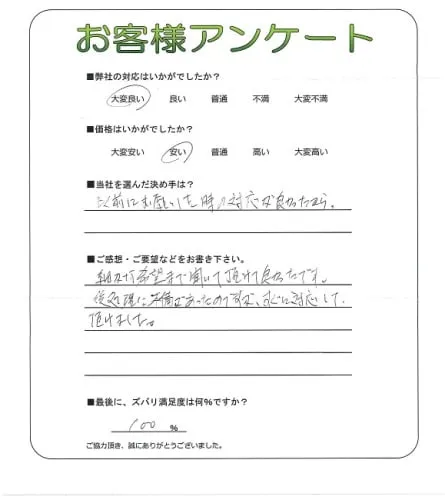 お客様アンケート
■弊社の対応はいかがでしたか？
大変良い 良い 普通 不満 大変不満
■価格はいかがでしたか？
大変安い 安い 普通 高い 大変高い
■当社を選んだ決め手は？
以前にお願いした時の対応が良かったから。
■ご感想・ご要望などをお書き下さい。
希望まで聞いて頂けて良かったです。
後処理に不備があったのですが、すぐに対応して
頂けました。
■最後に、ズバリ満足度は何%ですか？
100 %
ご協力頂き、誠にありがとうございました。